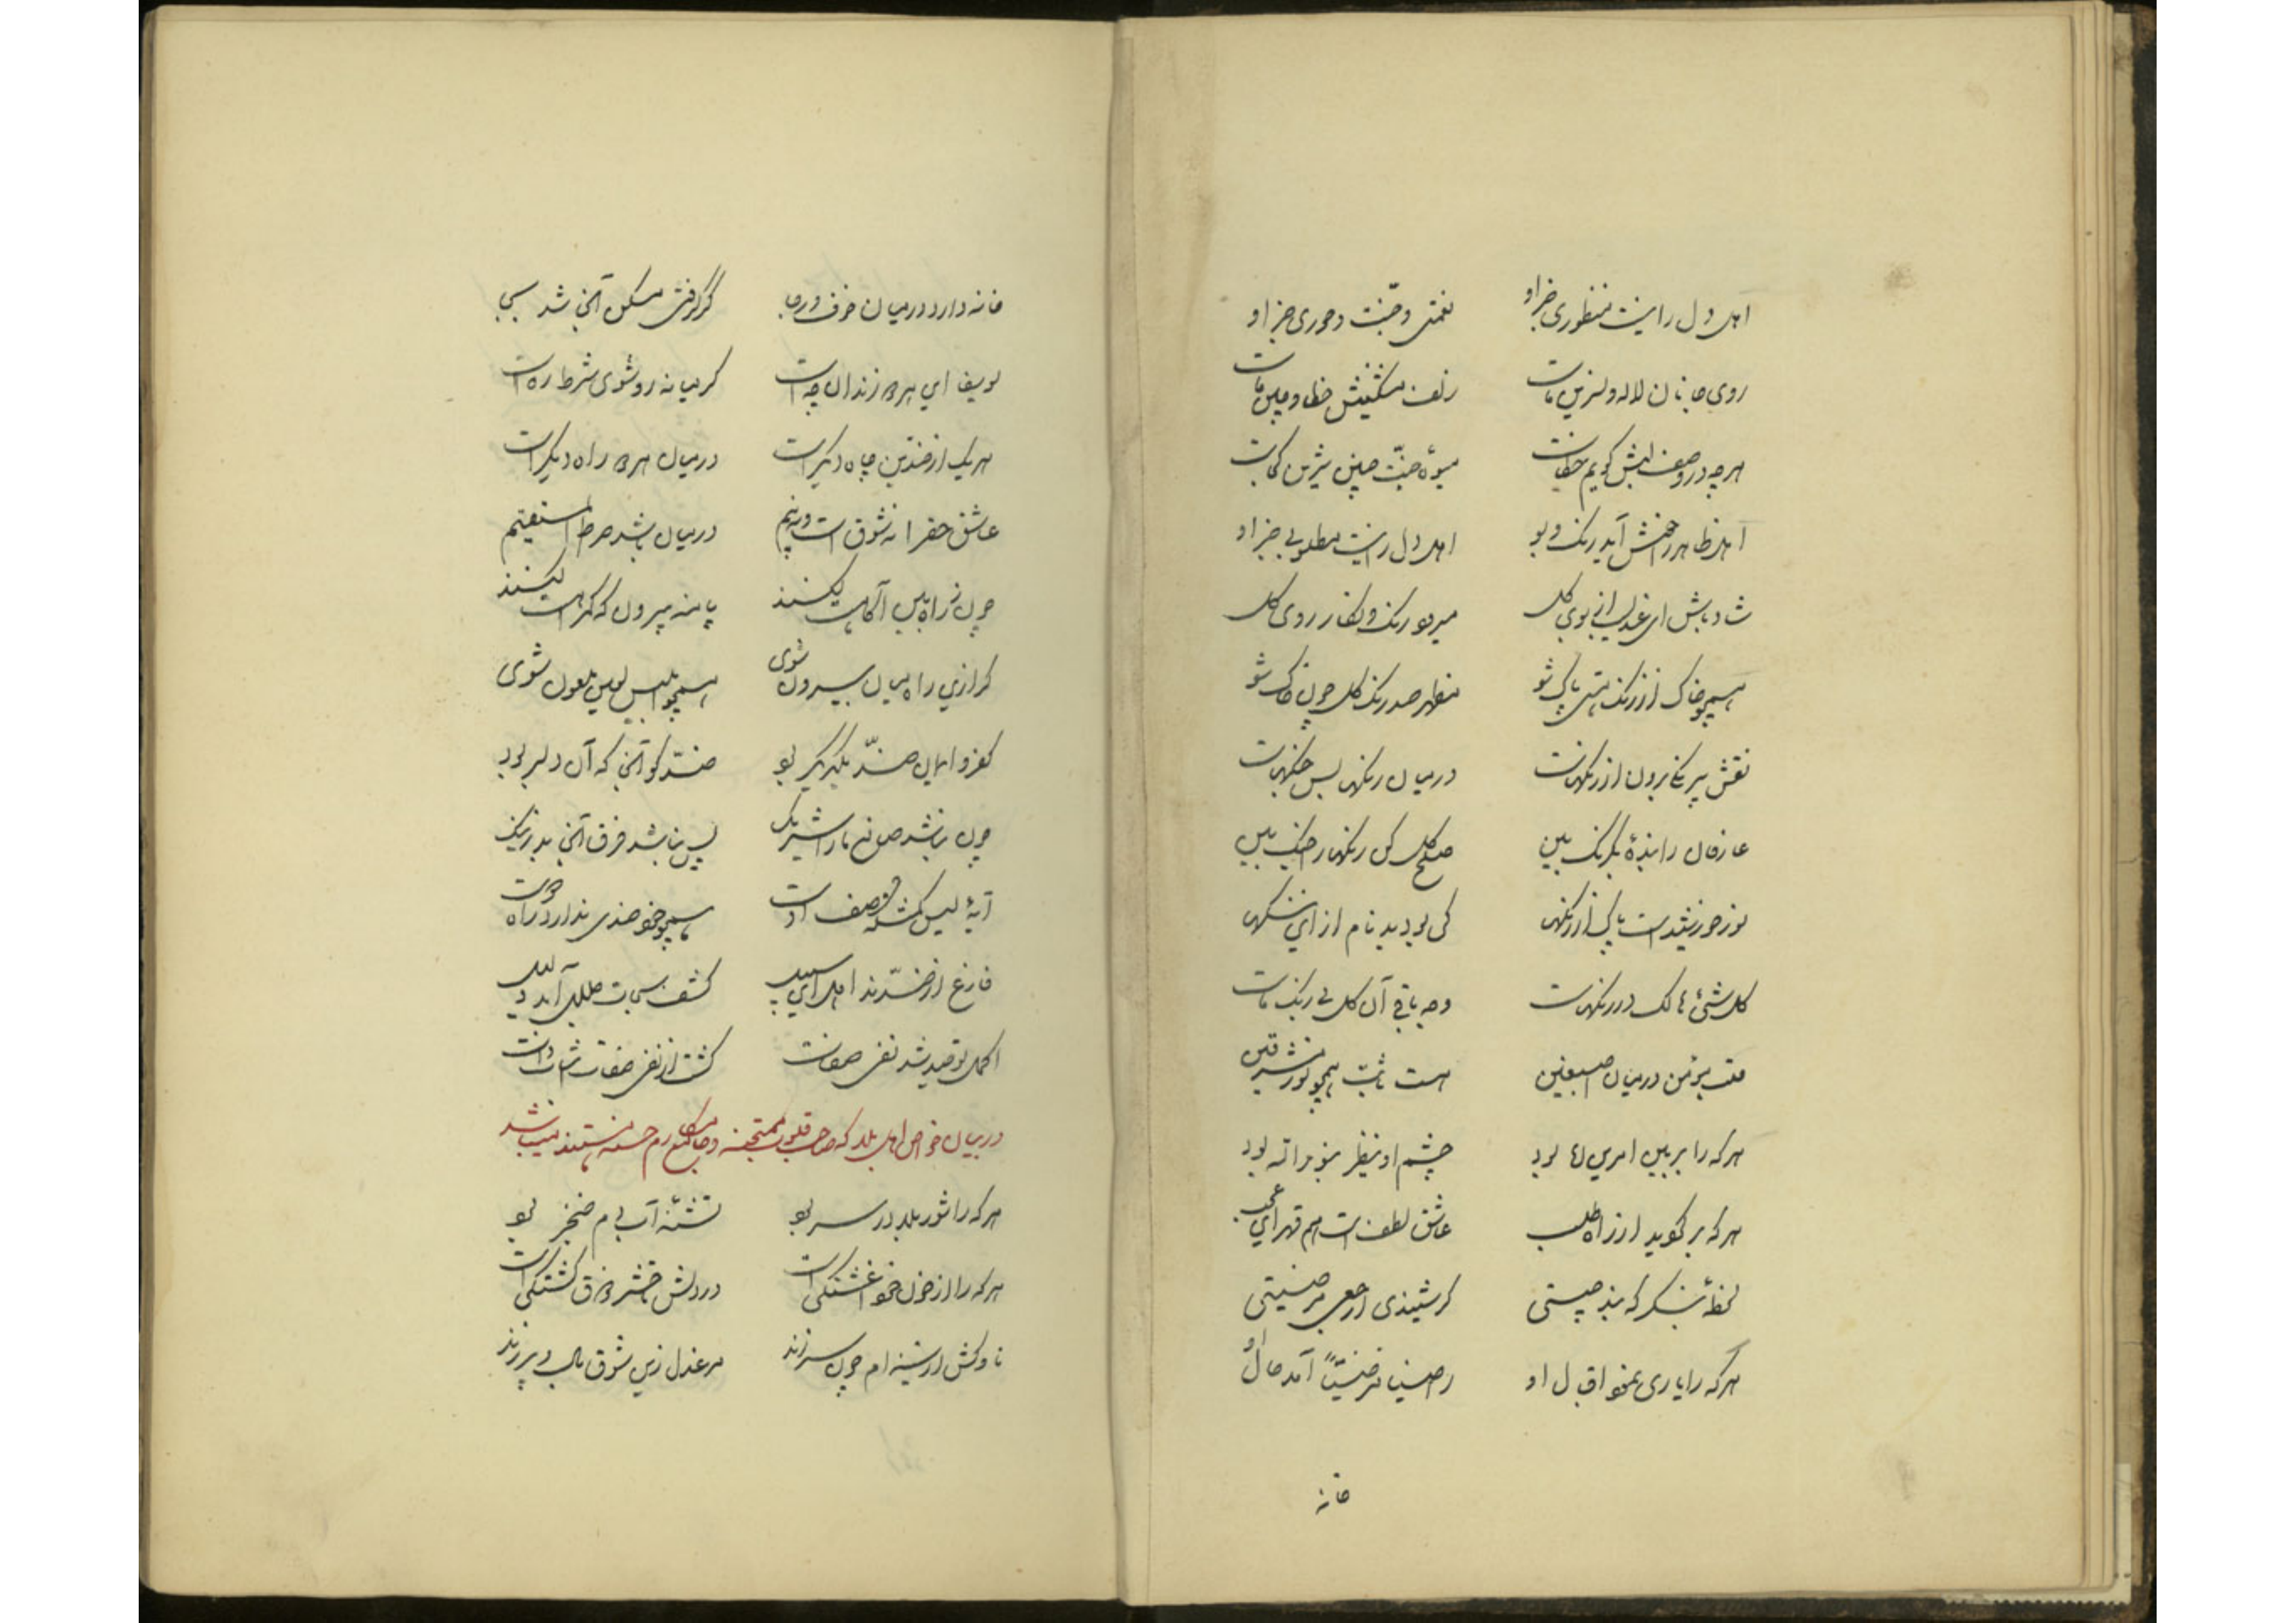 اهل دل را نیست منظوری جز او نعمتی و جنت و حوری جز او
روی جانان لاله و نسرین ماست زلف مشکینش خطا و چین ماست
هرچه در وصف لبش گویم خطاست میوهٔ جنت چنین شیرین کجاست
اهل ظاهر را خوش آید رنگ و بو اهل دل را نیست مطلوبی جز او
شاد باش ای عندلیب از بوی گل میرود رنگ و نگار روی گل
همچو خاک از رنگ هستی پاک شو مظهر صد رنگ گل چون خاک شو
نقش بیرنگی برون از رنگهاست در میان رنگها بس جنگهاست
عارفان را بندهٔ یکرنگ بین صلح کل کن رنگها را جنگ بین
نور خورشید است پاک از رنگها کی بود بدنام از این ننگها
کل شیء هالک در رنگهاست وجه باقی آن گل بی رنگ ماست
قلب مؤمن در میان اصبعین هست ثابت همچو نور مشرقین
هر که را بر بین امرین جا بود چشم او ینظر بنور الله بود
هر که بر گوید از راه طلب عاشق لطف است هم قهر ای عجب
لحظهٔ بنگر که بند چیستی گر شنیدی ارجعی مرضیتی
هر که را یاری نمود اقبال او راضیا مرضیتا آمد حال او
خانه
خانه دارد در میان خوف و رجا گر گرفتی مسکن آنجا شد بسی
یوسف این هر دو زندان چه است گر میانه رو شوی شرط ره است
هر یک از ضدین چاه دیگر است در میان هر دو راه دیگر است
عاشق حق را نه شوق است و نه بیم در میان باشد صراط المستقیم
چون ز راه بین آگاهت کنند پا منه بیرون که گمراهت کنند
گر ازین راه میان بیرون شوی همچو ابلیس لعین ملعون شوی
کفر و ایمان ضد یکدیگر بود ضد کو آنجا که آن دلبر بود
چون نباشد صانع ما را شریک پس نباشد فرق آنجا بد ز نیک
آیهٔ لیس کمثله وصف اوست همچو خود ضدی ندارد راه دوست
فارغ از ضدند اهل این سبیل کشف سبحات جلال آمد دلیل
اکمل توحید شد نفی صفات گشت از نفی صفات اثبات ذات
در بیان خواص اهل بلا که صاحب قلوب ممتحنه و جامع مکارم حسنه هستند میباشد
هر که را شور بلا در سر بود تشنهٔ آب دم خنجر بود
هر که را از خون خود آغشتگی است در دلش خنجر ذوق کشتگی است
ناوکش از سینه‌ام چون سر زند مرغ دل زین شوق بال و پر زند